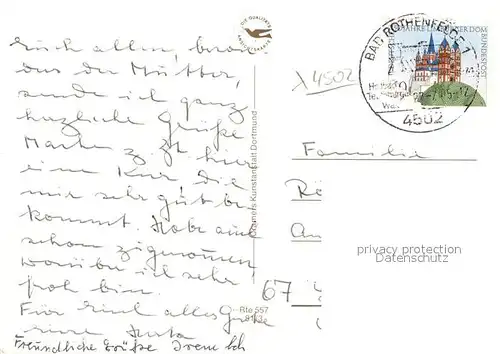 Euch allen, 
das der Mutter,
sende ich ganz
herzliche Grüße
Machen z. Zt. hier
eine Kur die
mir sehr gut be
kommt. Habe auch
schon zugenommen
worüber ich sehr
froh bin.
Für Euch alles Gute
eure Herta
Freundliche Grüße Irene Sch
DIE QUALITÄTS
ANSICHTSKARTE
Cramers Kunstanstalt Dortmund
Rte 557
λ 4502
BAD ROTHENFELDE 1
4502
JAHRE LIMBURGER DOM
DEUTSCHE BUNDESPOST
Familie
Rö
An
67
privacy protection
Datenschutz